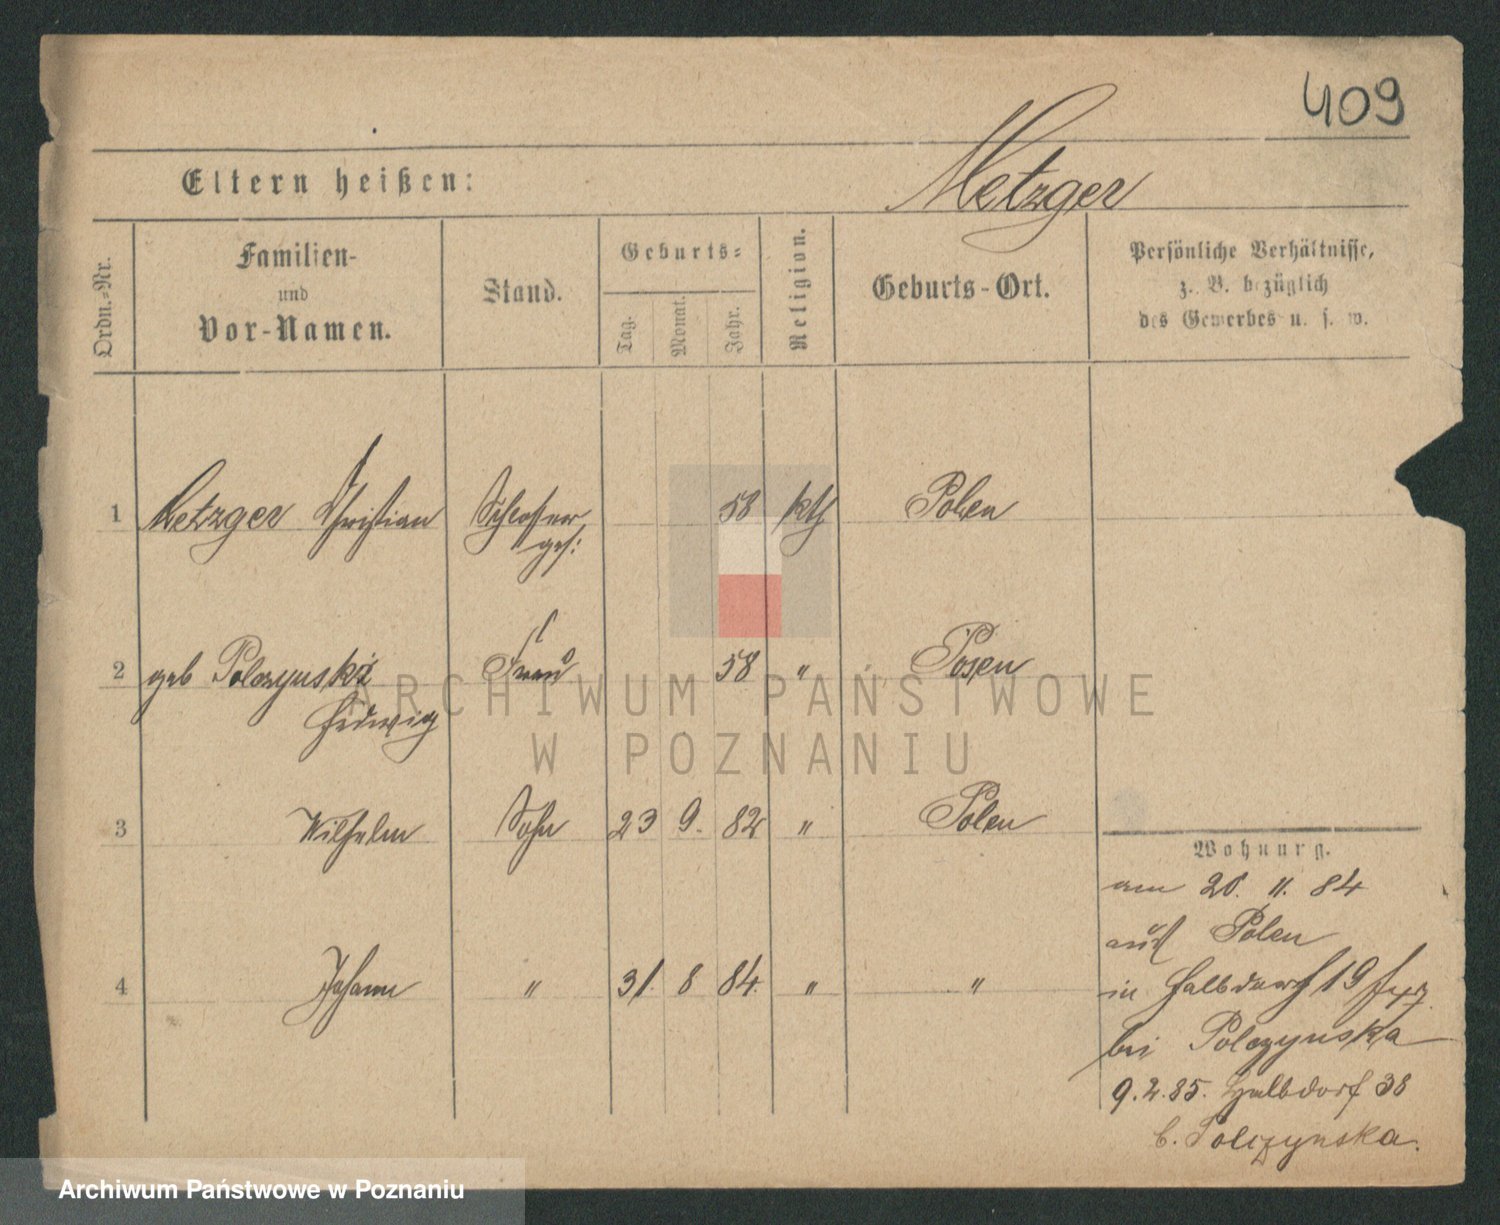 409
Eltern heißen: Metzger
Ordn.-Nr.
Familien-
und
Vor-Namen.
Stand.
Geburts-
Tag. Monat. Jahr.
Religion.
Geburts-Ort.
Persönliche Verhältnisse,
z. B. bezüglich
des Gewerbes u. s. w.
1 Metzger Christian Schlosser 58 kth Polen
ges:
2 geb Polczynski Frau 58 " Posen
Hedwig
3 Wilhelm Sohn 23 9. 82 " Polen
4 Johann " 31. 8 84. " "
Wohnung.
am 20. 11. 84
aus Polen
in Halbdorf 19
bei Polczynska
9.2.85. Halbdorf 38
b. Polczynska.
ARCHIWUM PAŃSTWOWE
W POZNANIU
Archiwum Państwowe w Poznaniu